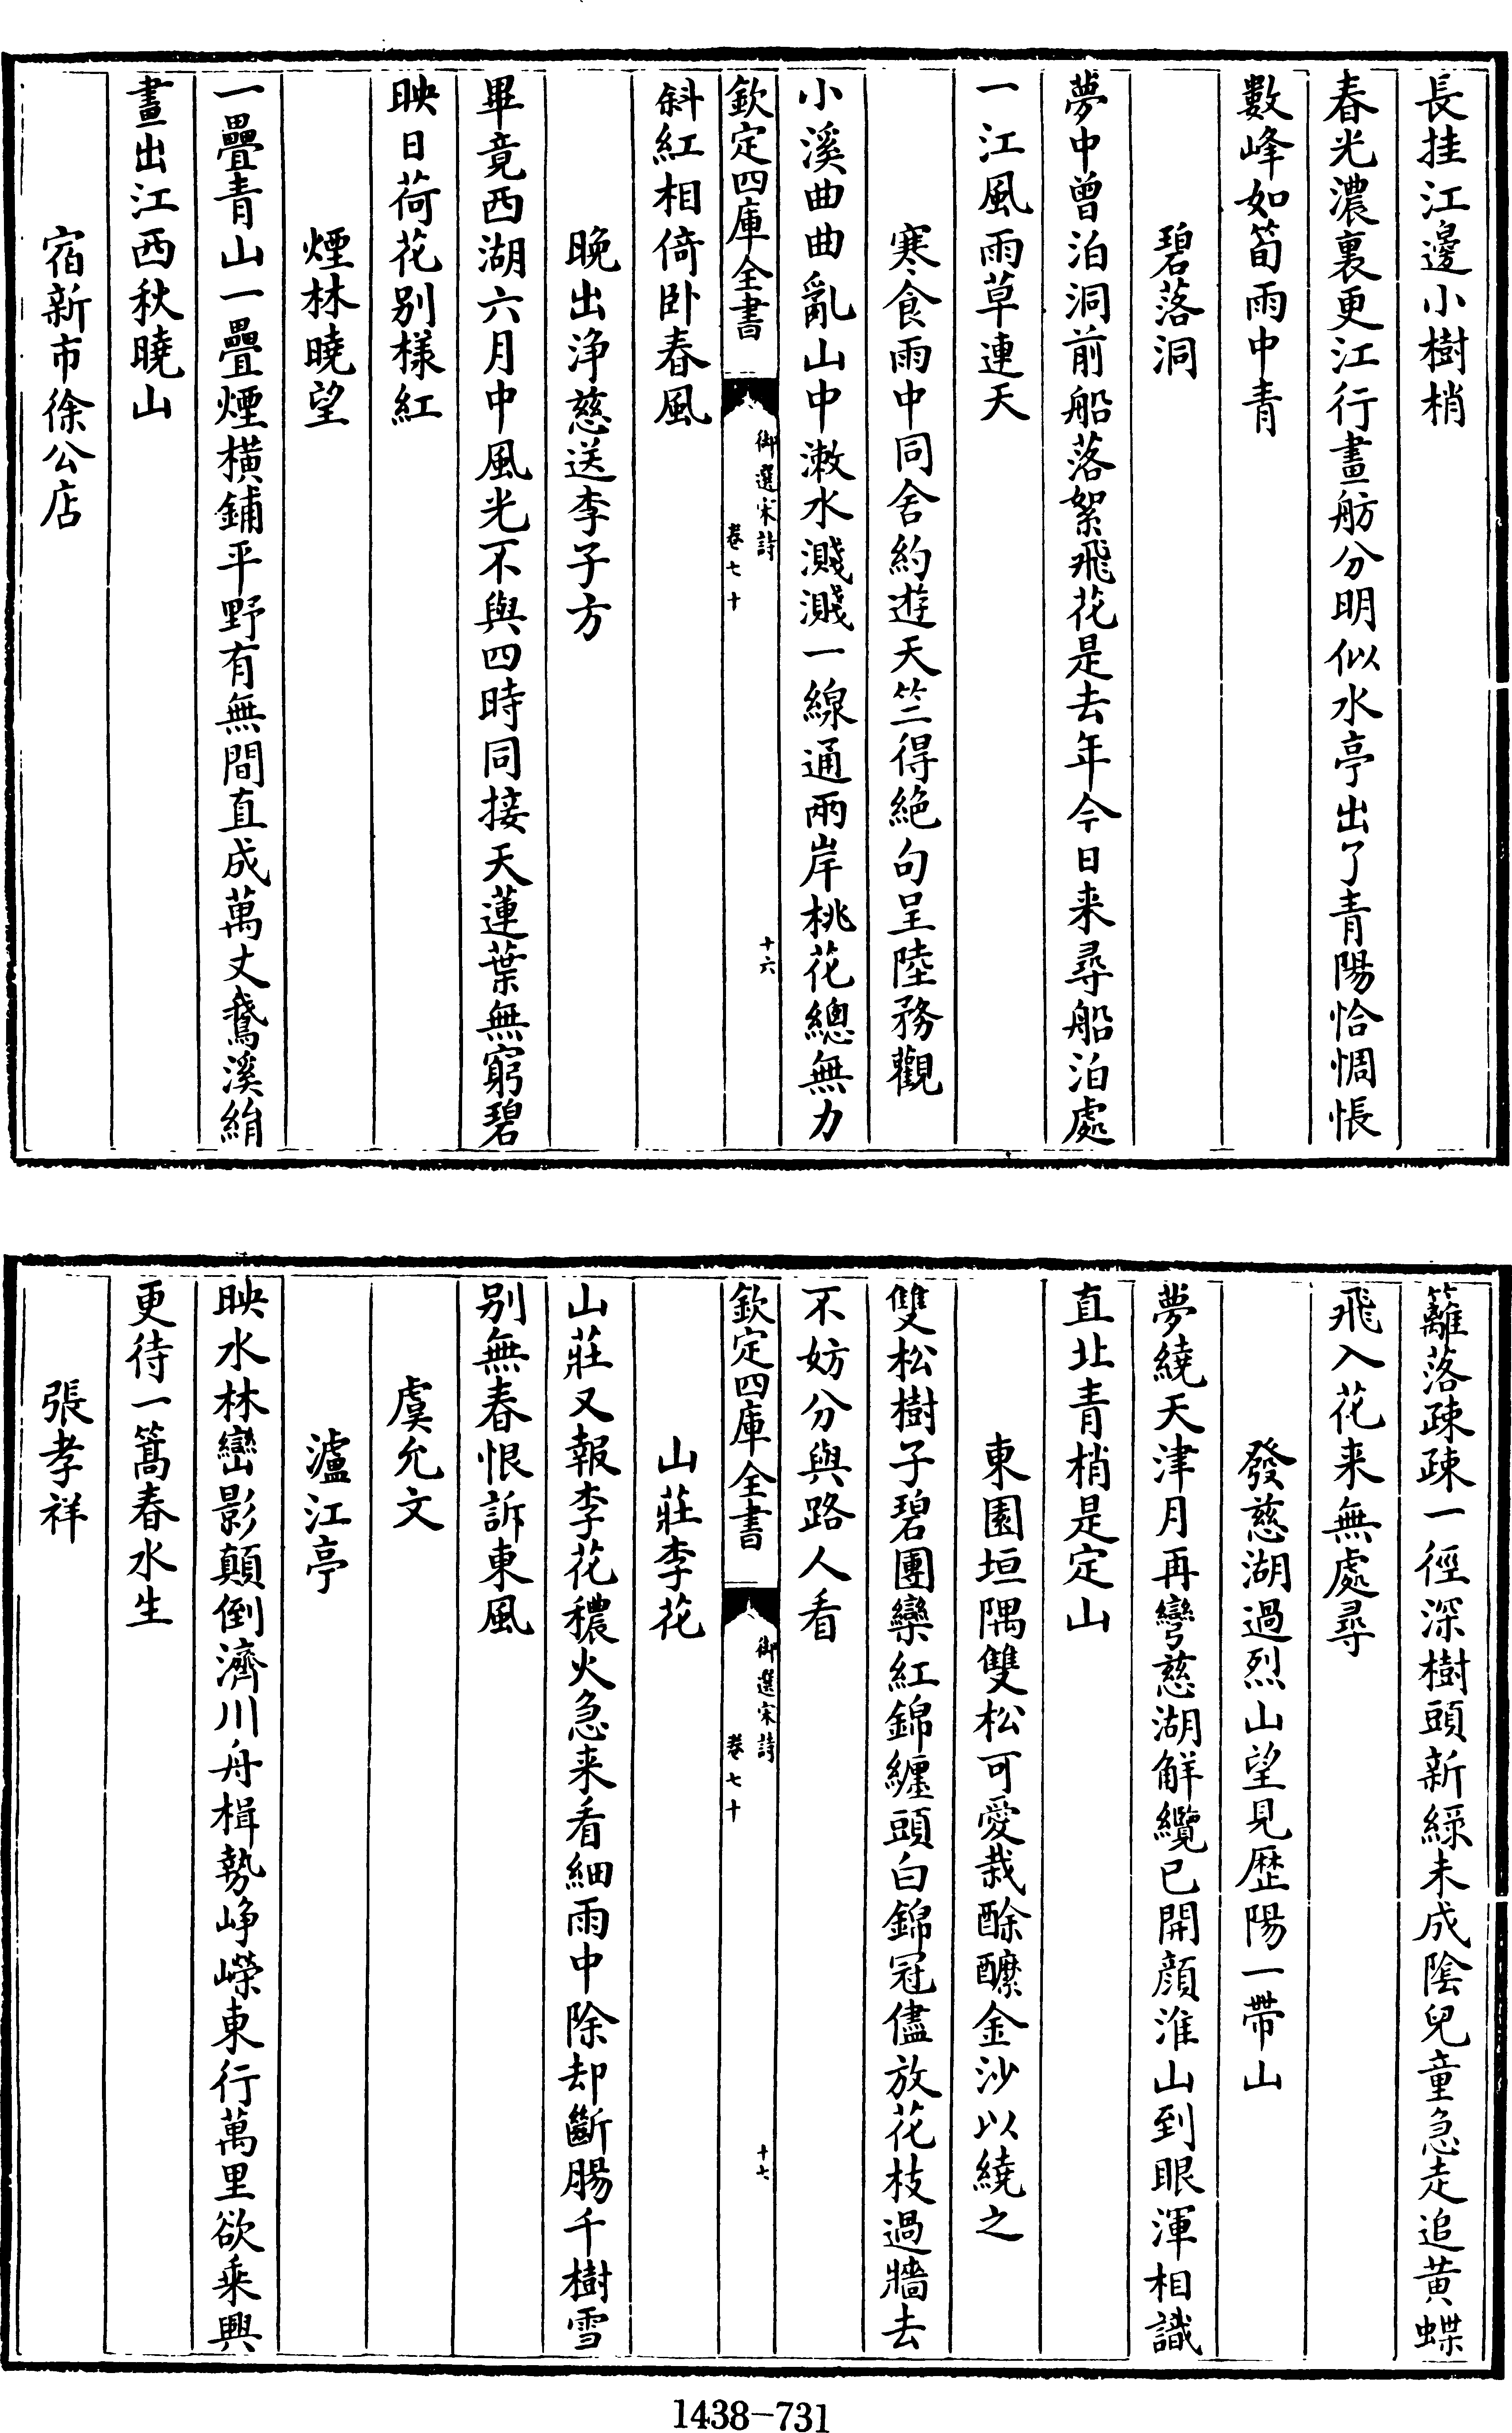 長挂江邊小樹梢
春光濃裏更江行畫舫分明似水亭出了青陽恰惆悵
數峰如筍雨中青
碧落洞
夢中曾泊洞前船落絮飛花是去年今日来尋船泊處
一江風雨草連天
寒食雨中同舍約遊天竺得絶句呈陸務觀
小溪曲曲亂山中潄水濺濺一線通兩岸桃花總無力
欽定四庫全書
御選宋詩
卷七十
十六
斜紅相倚卧春風
晚出浄慈送李子方
畢竟西湖六月中風光不與四時同接天蓮葉無窮碧
映日荷花别樣紅
煙林曉望
一疊青山一疊煙橫鋪平野有無間直成萬丈鵞溪絹
畫出江西秋曉山
宿新市徐公店
籬落疎疎一徑深樹頭新綠未成陰兒童急走追黄蝶
飛入花来無處尋
發慈湖過烈山望見歴陽一帶山
夢繞天津月再彎慈湖解纜已開顔淮山到眼渾相識
直北青梢是定山
東園垣隅雙松可愛栽酴醿金沙以繞之
雙松樹子碧團欒紅錦纏頭白錦冠儘放花枝過牆去
不妨分與路人看
欽定四庫全書
御選宋詩
卷七十
十七
山莊李花
山莊又報李花穠火急来看細雨中除却斷腸千樹雪
别無春恨訴東風
虞允文
瀘江亭
映水林巒影顛倒濟川舟楫勢峥嶸東行萬里欲乘興
更待一篙春水生
張孝祥
1438-731